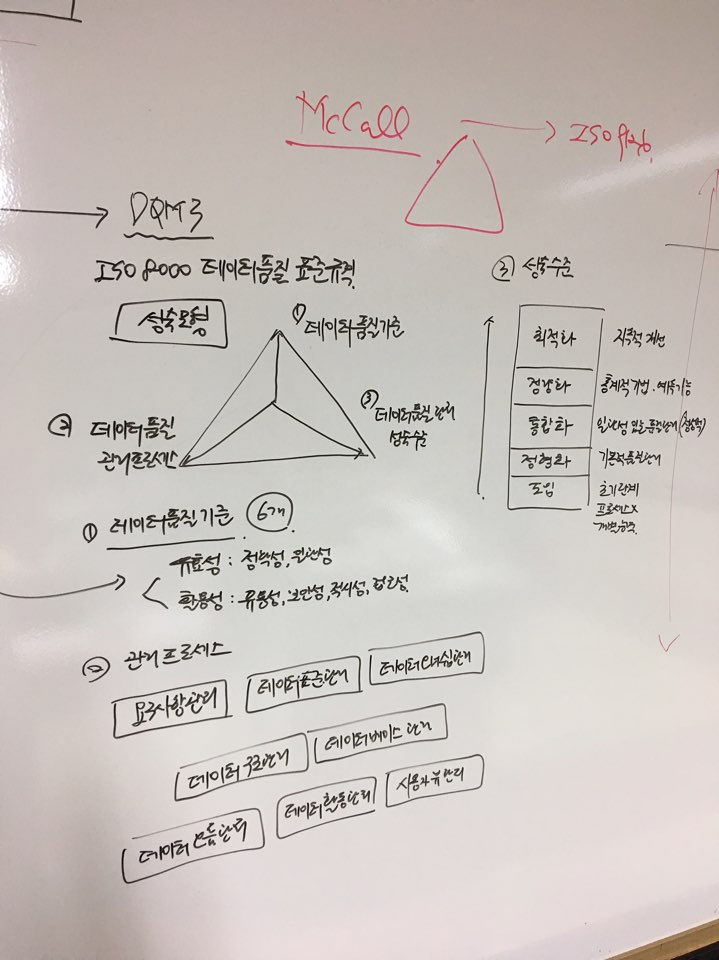 McCall
→ ISO 9126
→ DQM3
ISO 8000 데이터품질 표준규격.
성숙모형
① 데이터품질기준
② 데이터품질
관리프로세스
③ 데이터품질관리
성숙수준
③ 성숙수준
최적화 지속적 개선
정량화 통계적기법. 예측가능
통합화 일관성 있는 품질관리
정형화 기본적품질관리
도입 초기단계
프로세스X
① 데이터품질기준 6개
유효성 : 정확성, 일관성
활용성 : 유용성, 보안성, 적시성, 접근성.
② 관리프로세스
요구사항관리 데이터표준관리 데이터오너십관리
데이터구조관리 데이터베이스관리
데이터흐름관리 데이터활용관리 사용자뷰관리